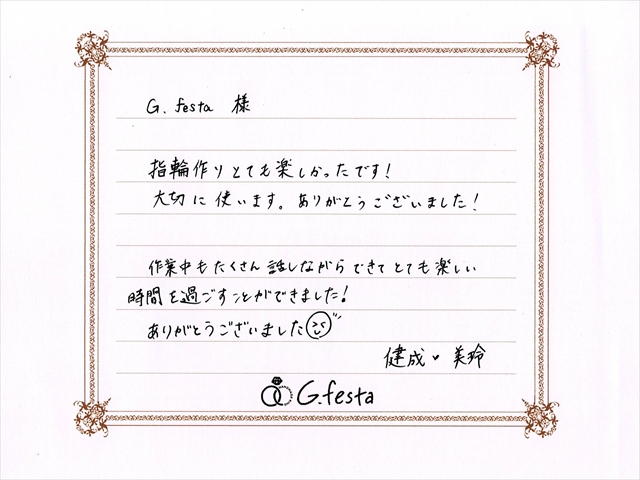 G.festa 様
指輪作りとても楽しかったです!
大切に使います。ありがとうございました!
作業中もたくさん話しながらできてとても楽しい
時間を過ごすことができました!
ありがとうございました
健成♥美玲
G.festa